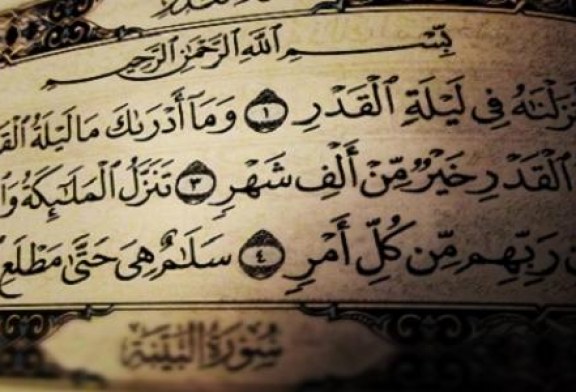 بِسْمِ ٱللَّهِ ٱلرَّحْمَٰنِ ٱلرَّحِيمِ
نزَلْنَٰهُ فِى لَيْلَةِ ٱلْقَدْرِ ١ وَمَآ أَدْرَىٰكَ مَا لَيْلَةُ ٱلْقَ
ٱلْقَدْرِ خَيْرٌ مِّنْ أَلْفِ شَهْرٍ ٣ تَنَزَّلُ ٱلْمَلَٰٓئِكَةُ وَٱ
رَبِّهِم مِّن كُلِّ أَمْرٍ ٤ سَلَٰمٌ هِىَ حَتَّىٰ مَطْلَعِ
سُورَةُ ٱلْبَيِّنَةِ